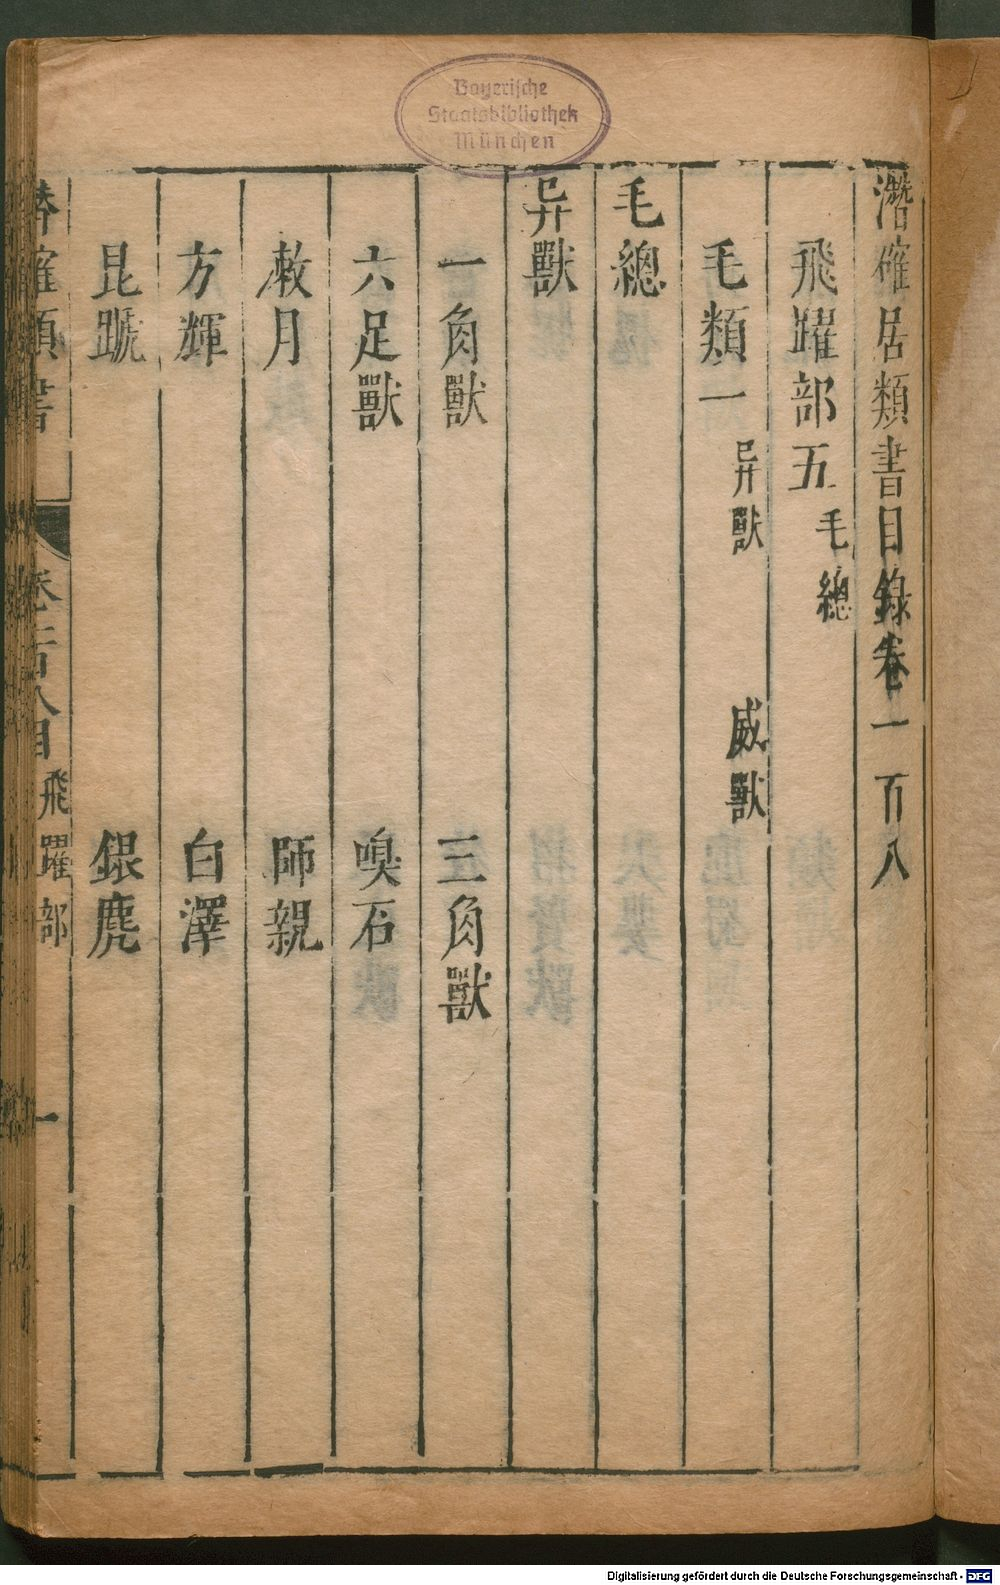 Bayerische
Staatsbibliothek
München
潛確居類書目錄卷一百八
飛躍部五 毛總
毛類一 异獸 威獸
毛總
异獸
一角獸 三角獸
六足獸 嗅石
敕月 師親
方輝 白澤
昆蹏 銀麂
飛躍部
一
Digitalisierung gefördert durch die Deutsche Forschungsgemeinschaft - DFG